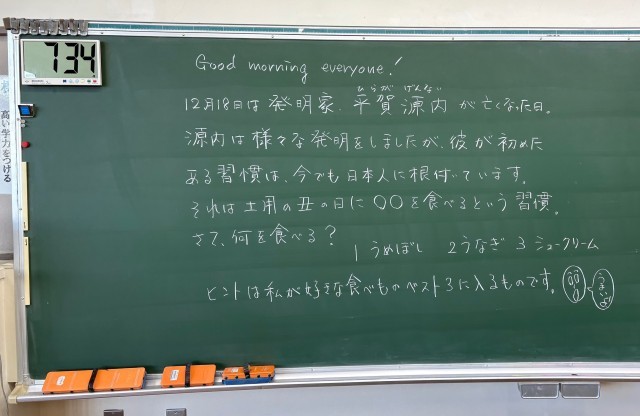 734
Good morning everyone!
12月18日は発明家、平賀源内が亡くなった日。
ひらが げんない
源内は様々な発明をしましたが、彼が初めた
ある習慣は、今でも日本人に根付いています。
それは土用の丑の日に〇〇を食べるという習慣。
さて、何を食べる?
1 うめぼし 2 うなぎ 3 シュークリーム
ヒントは私が好きな食べものベスト3に入るものです。
高い学力をつける